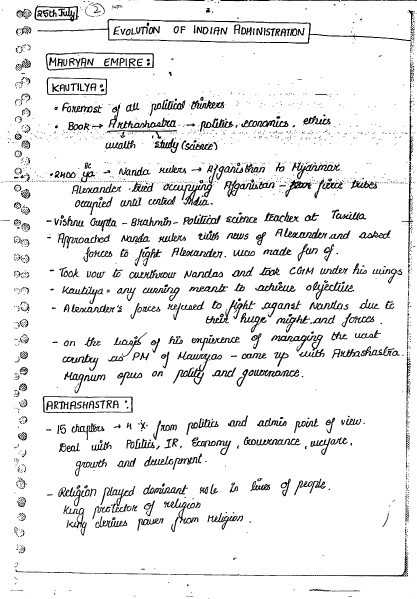 25th July
2
2.
EVOLUTION OF INDIAN ADMINISTRATION
MAURYAN EMPIRE :
KAUTILYA :
• Foremost of all political thinkers
• Book → Arthashastra → politics, economics, ethics
wealth study (science)
• 2400 BC ya → Nanda rulers → Afganisthan to Myanmar
Alexander tried occupying Afganistan - fierce tribes
ocupied until central India.
- Vishnu Gupta - Brahmin - Political science teacher at Taxilla
- Approached Nanda rulers with news of Alexander and asked
forces to fight Alexander. was made fun of.
- Took vow to overthrow Nandas and took CGM under his wings
- Kautilya = any cunning means to achieve objective
- Alexander's forces refused to fight against Nandas due to
their huge might and forces.
- on the basis of his experience of managing the vast
country as PM of Mauryas - came up with Arthashastra.
Magnum opus on polity and governance.
ARTHASHASTRA :
- 15 chapters → 4 from politics and admin point of view.
Deal with Politics, IR, Economy, Governance, welfare,
growth and development.
- Religion played dominant role in lives of people.
King protector of religion
King derives power from religion.